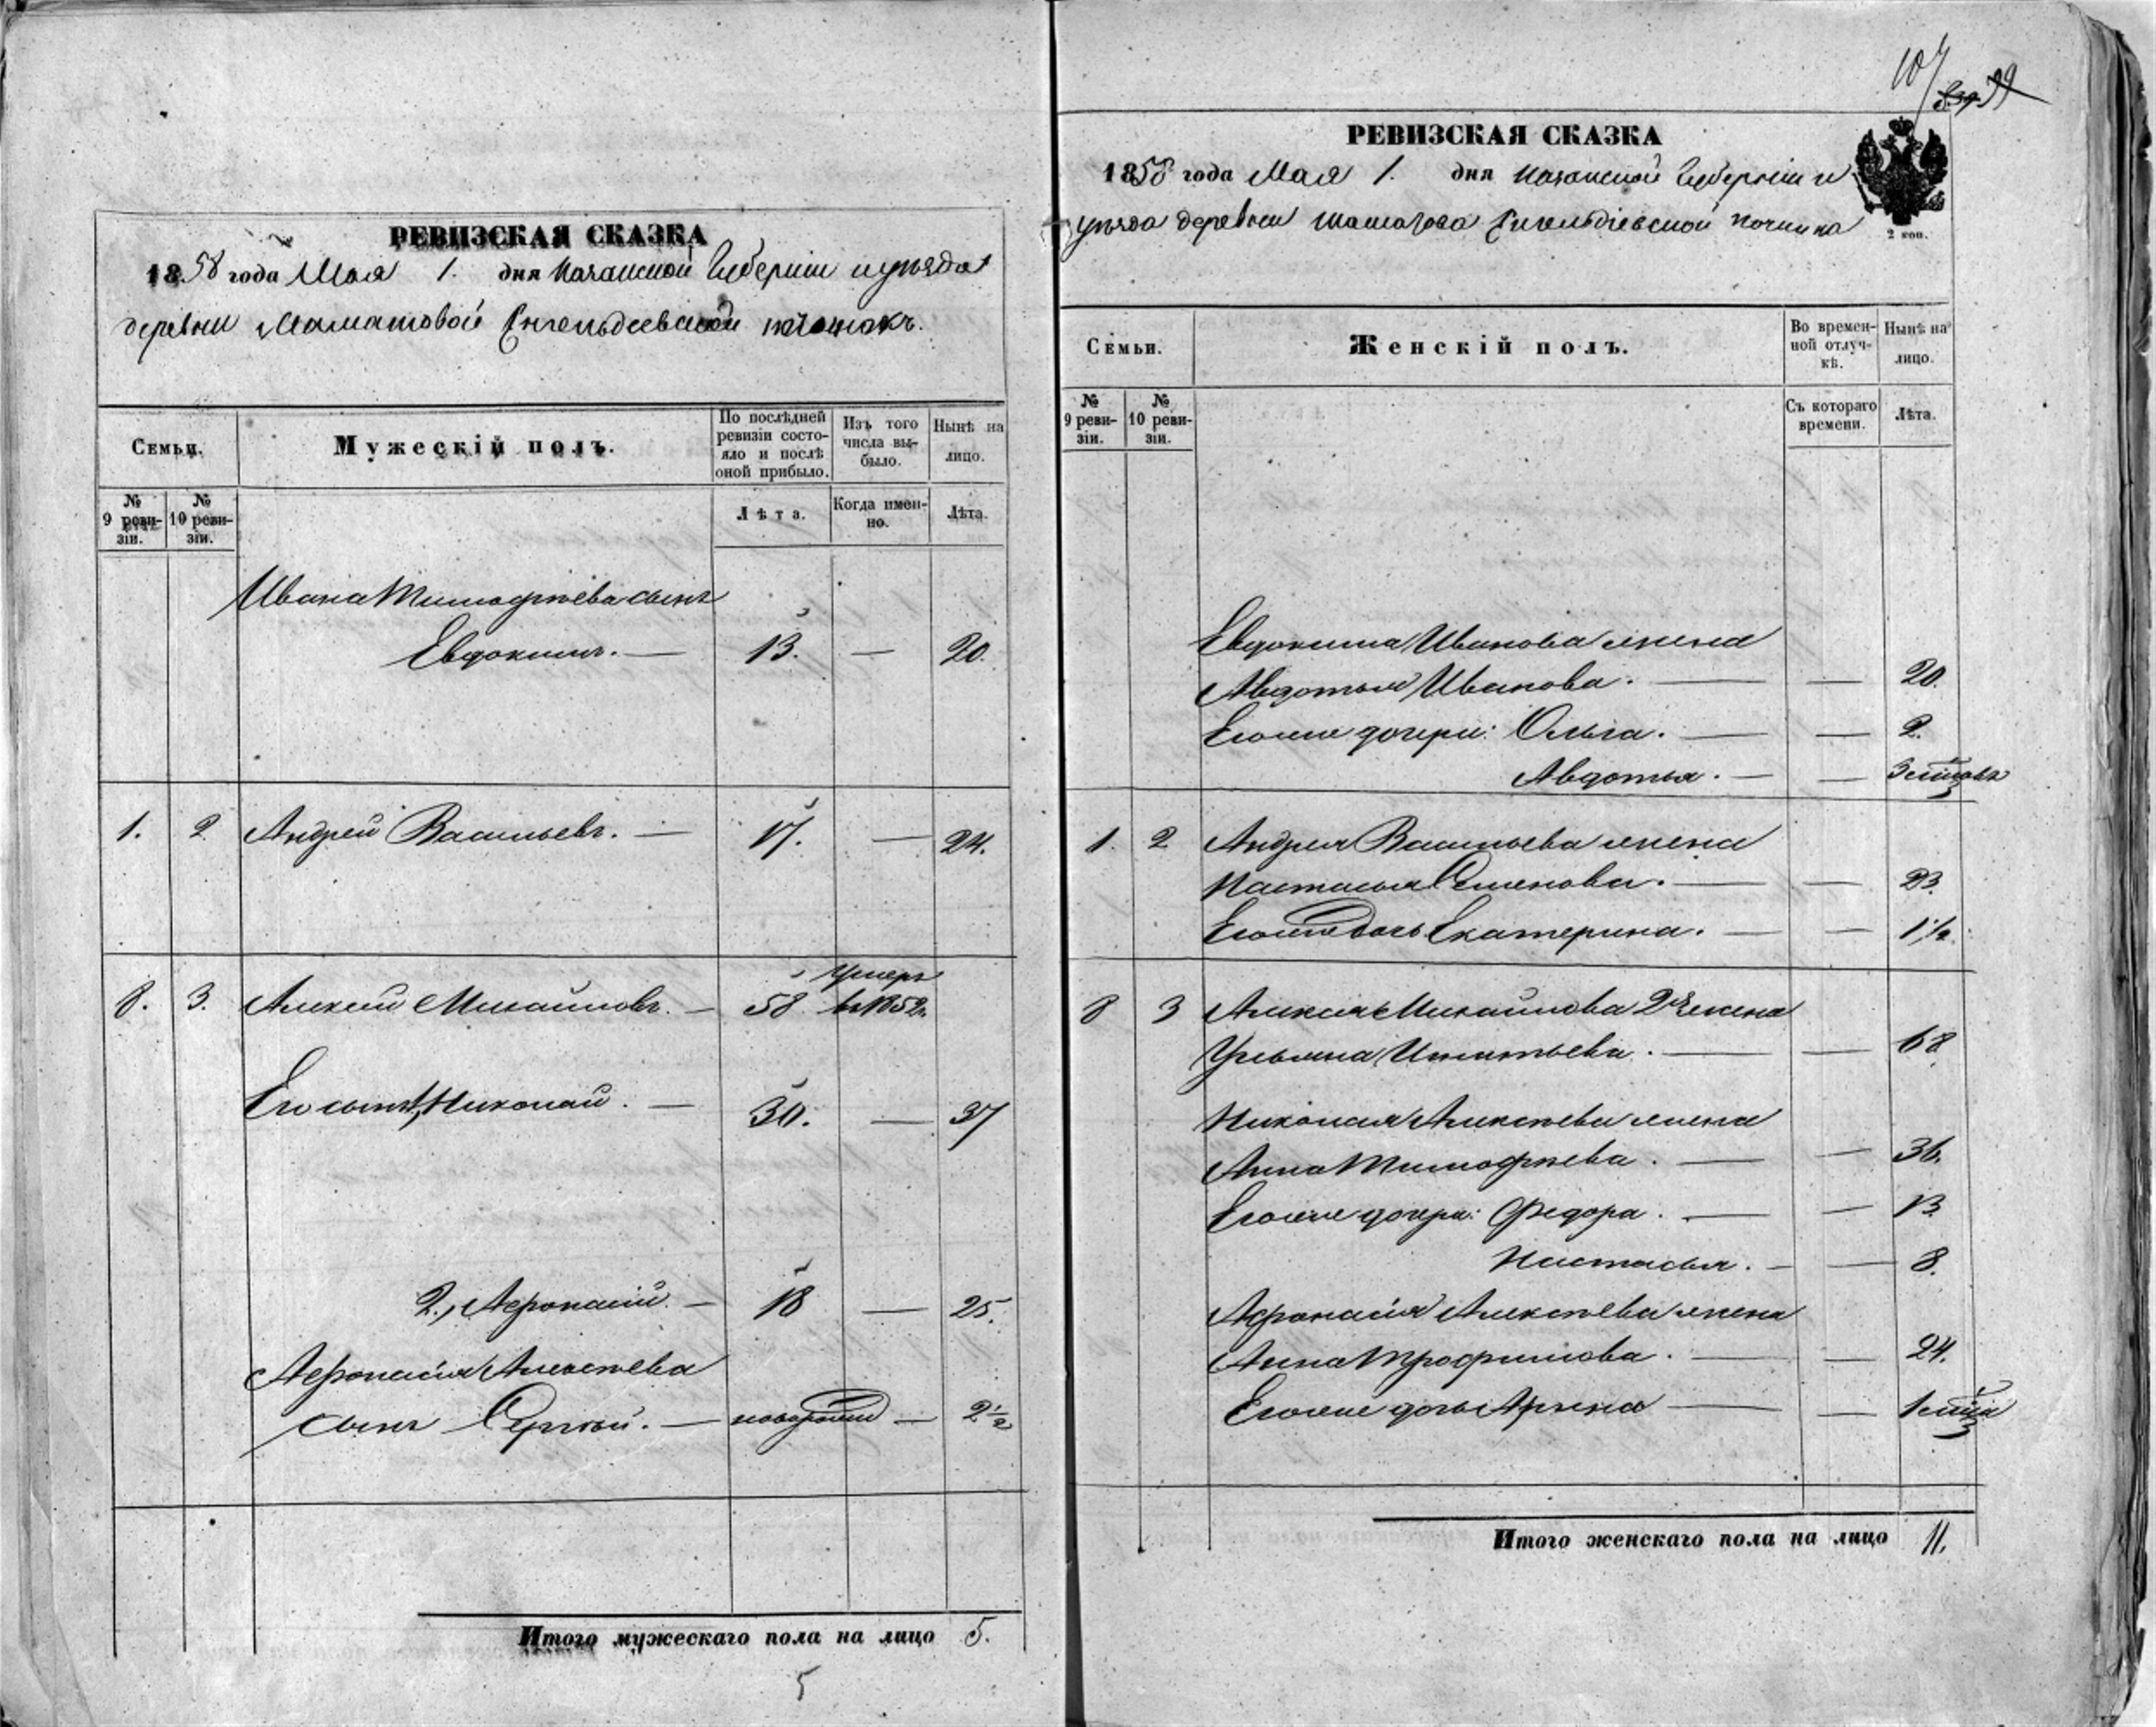 РЕВИЗСКАЯ СКАЗКА
1858 года Мая 1. дня Казанской Губернiи и уѣзда
деревни Маматовой Енгельдеевской починокъ.
Семьи.
Мужескій полъ.
По послѣдней ревизіи состояло и послѣ оной прибыло.
Изъ того числа выбыло.
Нынѣ на лицо.
№ 9 реви-зіи.
№ 10 реви-зіи.
Лѣта.
Когда имен-но.
Лѣта.
Ивана Тимофѣева сынъ
Евдокимъ. — 13. — 20.
1. 2 Андрей Васильевъ. — 17. — 24.
8. 3. Алексей Михайловъ. — 58 умеръ въ 1852.
Его сынъ 1, Николай. — 30. — 37
2., Афонасій. — 18 — 25.
Афонасія Алексѣева
сынъ Сергѣй. — новорожден — 2 1/2
Итого мужескаго пола на лицо 5.
5
107
99
РЕВИЗСКАЯ СКАЗКА
1858 года Мая 1. дня Казанской Губерніи и
уѣзда деревни Енгельдіевской починка
2 коп.
Семьи.
Женскій полъ.
Во времен-ной отлуч-кѣ.
Нынѣ на лицо.
№ 9 реви-зіи.
№ 10 реви-зіи.
Съ котораго времени.
Лѣта.
Евдокима Иванова жена
Авдотья Иванова. — — 20.
Его же дочери: Ольга. — — 2.
Авдотья. — — 3 мѣсяцовъ
1. 2 Андрея Васильева жена
Настасья Семенова. — — 23.
Его же дочь Екатерина. — — 1 1/2.
8 3 Алексея Михайлова 2я жена
Ульяна Игнатьева. — — 68
Николая Алексѣева жена
Анна Тимофѣева. — — 36.
Его же дочери: Федора. — — 13.
Настасья. — — 8.
Афонасія Алексѣева жена
Анна Трофимова. — — 24.
Его же дочь Арина — — 1 мѣсяца
Итого женскаго пола на лицо 11.